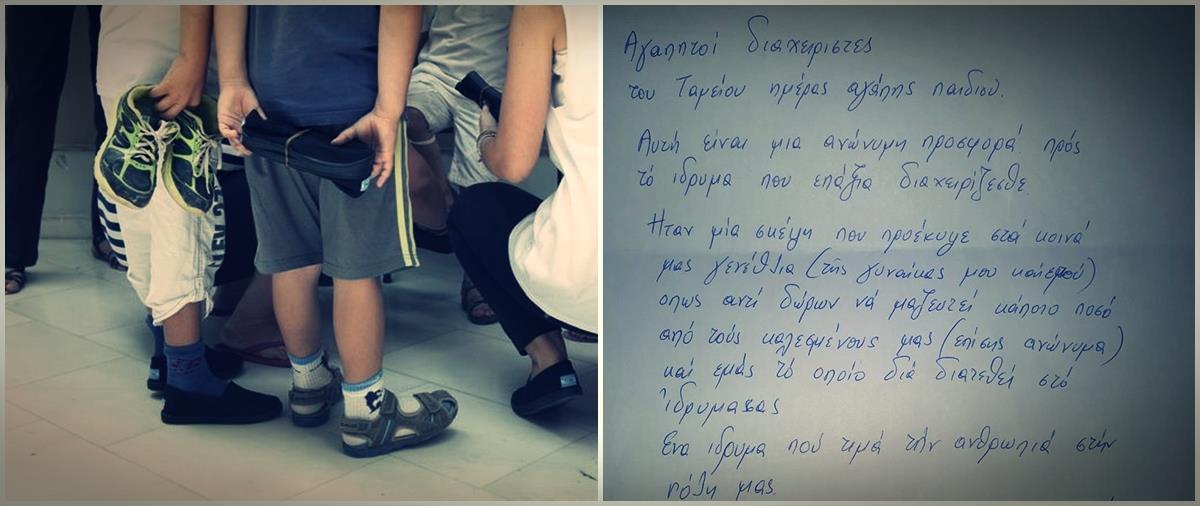 Αγαπητοί διαχειριστες
του Ταμείου ημέρας αγάπης παιδιού.
Αυτή είναι μια ανώνυμη προσφορά πρός
τό ιδρυμα που επάξια διαχειρίζεσθε
Ηταν μία σκέψη που προέκυψε στά κοινά
μας γενέθλια (τής γυναίκας μου και εμού)
οπως αντί δώρων νά μαζευτεί κάποιο ποσό
από τούς καλεσμένους μας (επίσης ανώνυμα)
καί εμάς τό οποίο διά διατεθεί στό
ίδρυμα σας
Ενα ιδρυμα πού τιμά τήν ανθρωπιά στήν
πόλη μας.